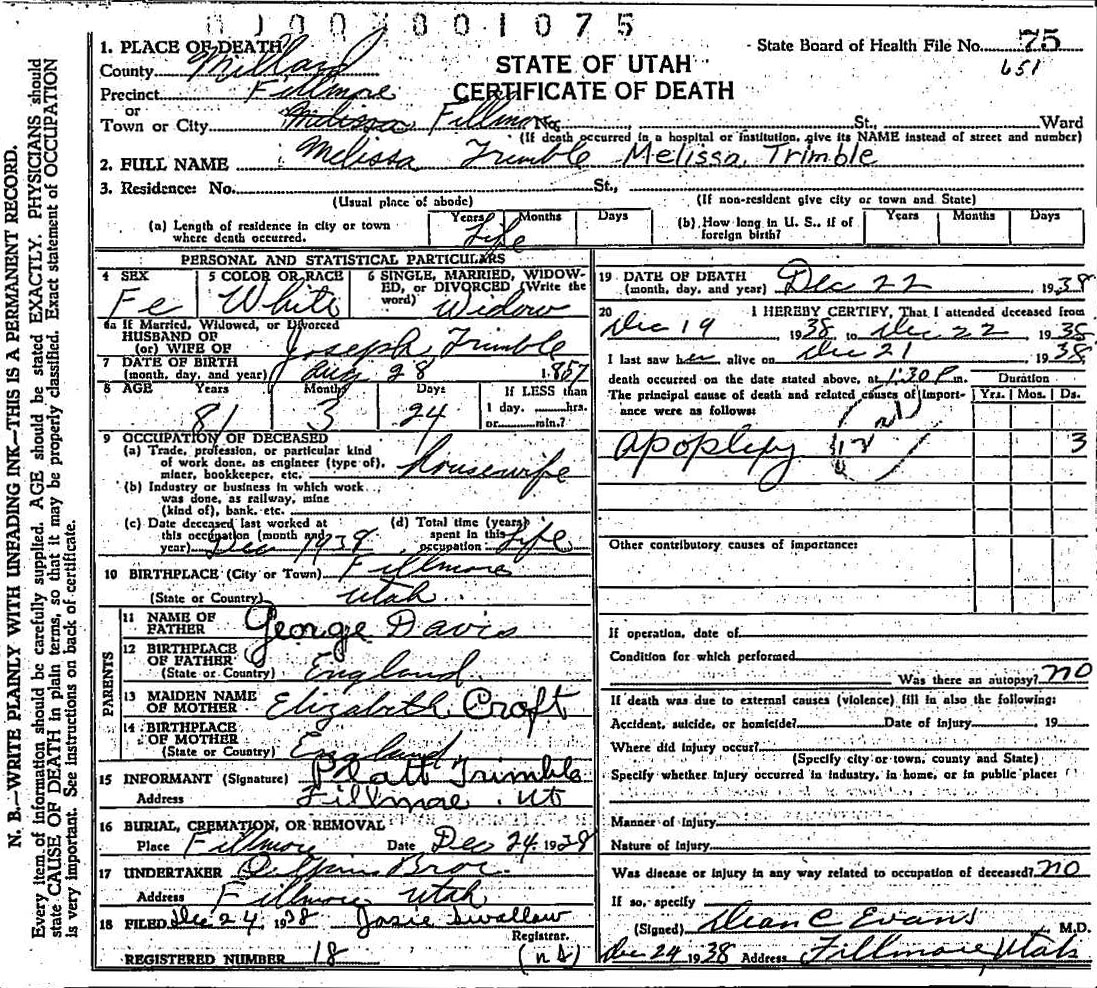 0100 3001075
1. PLACE OF DEATH
County Millard
Precinct Fillmore
or
Town or City Melissa Fillmore No. St., Ward
(If death occurred in a hospital or institution, give its NAME instead of street and number)
STATE OF UTAH
CERTIFICATE OF DEATH
State Board of Health File No. 75
651
2. FULL NAME Melissa Trimble Melissa Trimble
3. Residence: No. St.,
(Usual place of abode) (If non-resident give city or town and State)
(a) Length of residence in city or town where death occurred. Years Months Days Life
(b) How long in U. S., if of foreign birth? Years Months Days
PERSONAL AND STATISTICAL PARTICULARS
4 SEX Fe
5 COLOR OR RACE White
6 SINGLE, MARRIED, WIDOWED, or DIVORCED (Write the word) Widow
6a If Married, Widowed, or Divorced
HUSBAND OF
(or) WIFE OF Joseph Trimble
7 DATE OF BIRTH
(month, day, and year) Aug 28 1857
8 AGE Years Months Days If LESS than
81 3 24 1 day, hrs.
or min.?
9 OCCUPATION OF DECEASED
(a) Trade, profession, or particular kind
of work done, as engineer (type of),
miner, bookkeeper, etc. housewife
(b) Industry or business in which work
was done, as railway, mine
(kind of), bank, etc.
(c) Date deceased last worked at
this occupation (month and
year) Dec 1938
(d) Total time (years)
spent in this
occupation Life
10 BIRTHPLACE (City or Town) Fillmore
(State or Country) Utah
PARENTS
11 NAME OF
FATHER George Davis
12 BIRTHPLACE
OF FATHER
(State or Country) England
13 MAIDEN NAME
OF MOTHER Elizabeth Croft
14 BIRTHPLACE
OF MOTHER
(State or Country) England
15 INFORMANT (Signature) Platt Trimble
Address Fillmore Ut
16 BURIAL, CREMATION, OR REMOVAL
Place Fillmore Date Dec 24, 1938
17 UNDERTAKER Bros.
Address Fillmore Utah
18 FILED Dec 24, 1938 Josie Swallow
Registrar.
REGISTERED NUMBER 18
19 DATE OF DEATH
(month, day, and year) Dec 22 1938
20 I HEREBY CERTIFY, That I attended deceased from
Dec 19 1938 to Dec 22, 1938
I last saw her alive on Dec 21 1938
death occurred on the date stated above, at 1:30 P m.
The principal cause of death and related causes of importance were as follows:
Duration
Yrs. Mos. Ds.
apoplexy 3
Other contributory causes of importance:
If operation, date of
Condition for which performed
Was there an autopsy? no
If death was due to external causes (violence) fill in also the following:
Accident, suicide, or homicide? Date of Injury , 19
Where did injury occur?
(Specify city or town, county and State)
Specify whether injury occurred in industry, in home, or in public place:
Manner of Injury
Nature of Injury
Was disease or injury in any way related to occupation of deceased? no
If so, specify
(Signed) Dean C Evans, M.D.
Dec 24 1938 Address Fillmore Utah
N. B.—WRITE PLAINLY WITH UNFADING INK—THIS IS A PERMANENT RECORD.
Every item of information should be carefully supplied. AGE should be stated EXACTLY. PHYSICIANS should
state CAUSE OF DEATH in plain terms, so that it may be properly classified. Exact statement of OCCUPATION
is very important. See instructions on back of certificate.